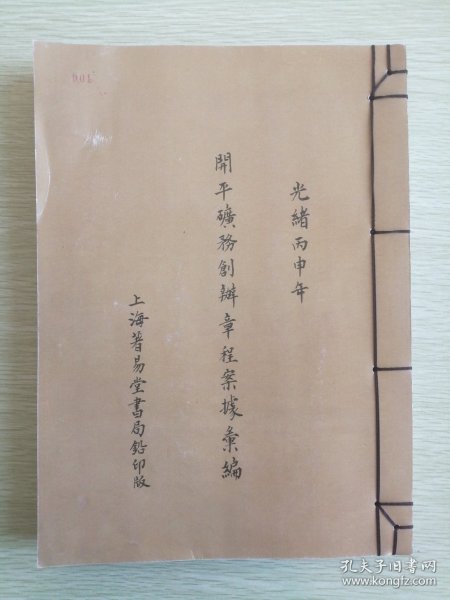 光緒丙申年
開平礦務創辦章程案據彙編
上海著易堂書局鉛印版
孔夫子旧书网
www.kongfz.com